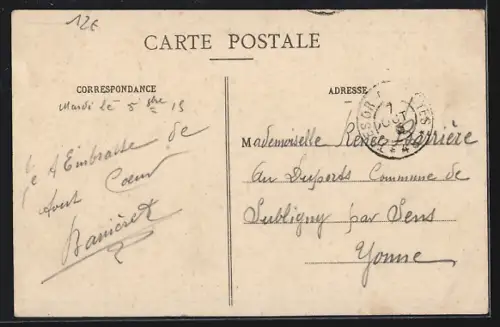 12€
CARTE POSTALE
CORRESPONDANCE
Mardi le 5 8bre 15
Je t'Embrasse de
tout Cœur
Barrière
ADRESSE
TRESOR POSTES
7
OCT
Mademoiselle Renée Barrière
au Duports Commune de
Subligny par Sens
Yonne